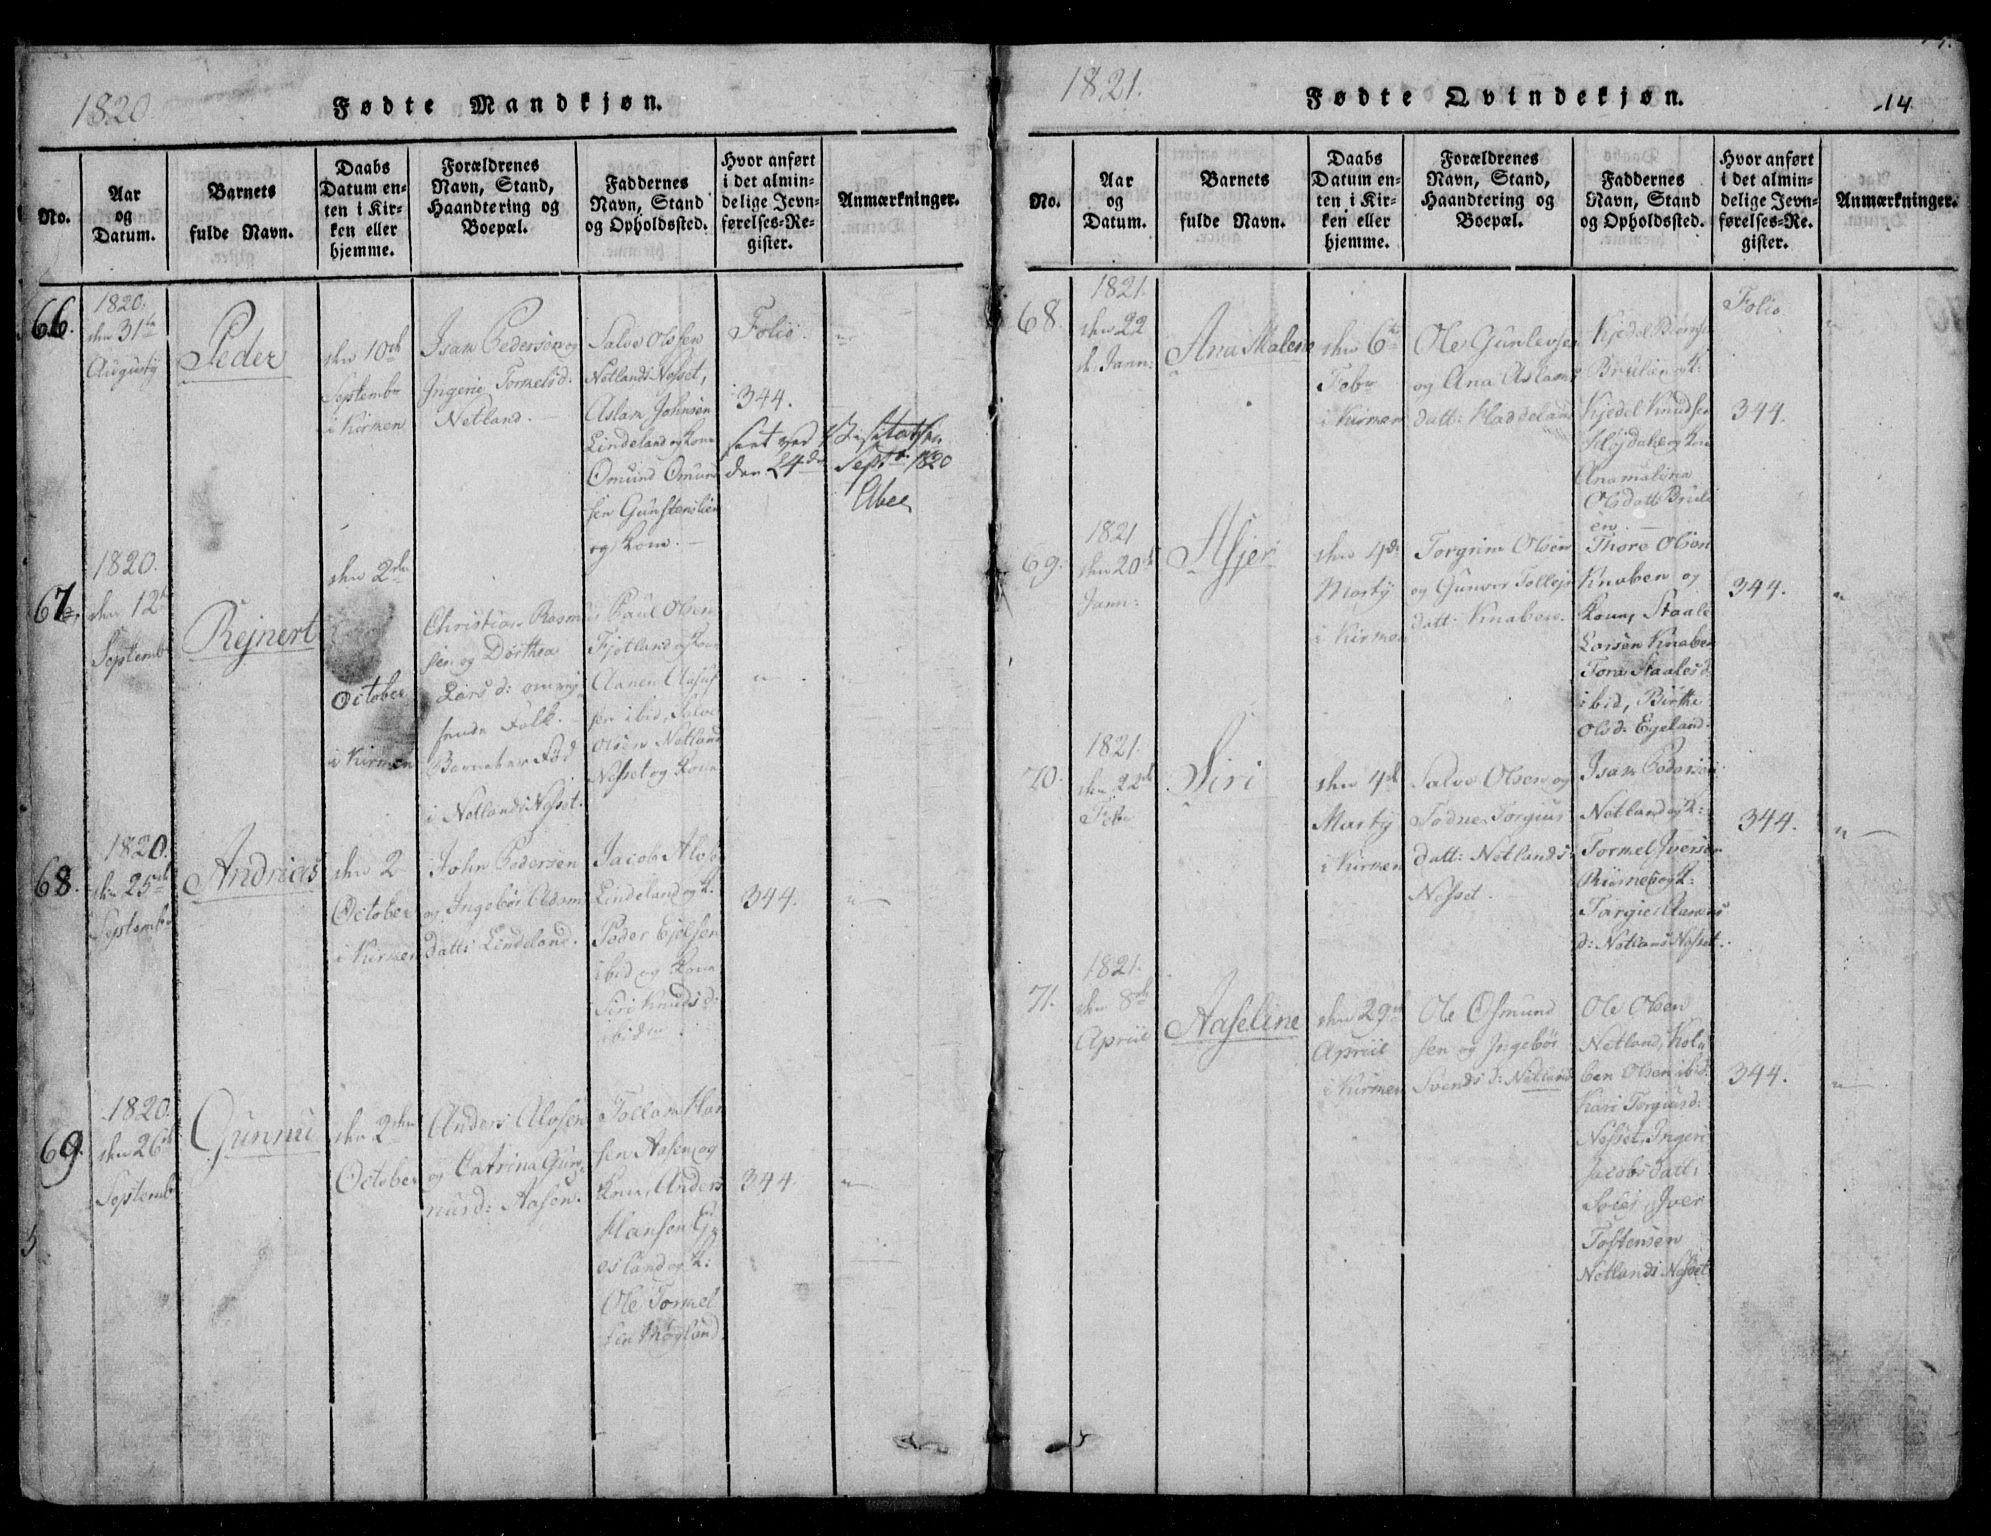 1820
Fødte Mandkjøn.
No.
Aar
og
Datum.
Barnets
fulde Navn.
Daabs
Datum en-
ten i Kir-
ken eller
hjemme.
Forældrenes
Navn, Stand,
Haandtering og
Boepæl.
Faddernes
Navn, Stand
og Opholdssted.
Hvor anført
i det almin-
delige Jevn-
førelses-Re-
gister.
Anmærkninger.
66.
1820.
den 31te
Augusty
Peder
den 10de
Septembr
i Kirken
Isak Pedersen og
Ingerie Tormelsd:
Netland.
Salve Olsen
Netlands Nesset,
Aslak Johnsen
Lindeland og Kone
Omund Omund
sen Gunstenslien
og Kone.
Folio.
344.
seet ved Visitatsen
den 24de Septbr 1820
67.
1820.
den 12te
Septembr
Rejnert
den 2den
October
i Kirken
Christian Rasmu
sen og Dorthea
Lars d: omrej
sende Folk.
Barnet er Fød
i Netlands Nesset.
Paul Olsen
Fjotland og Kone
Aanen Aasuf
sen ibid, Salve
Olsen Netland
Nesset og Kone
68.
1820.
den 25de
Septembr
Andrias
den 2
October
i Kirken
John Pedersen
og Ingebor Adam
datt: Lindeland.
Jacob Alvsen
Lindeland og K.
Peder Ejelsen
ibid og Kone
Siri Knuds d:
ibidm
344.
69.
1820.
den 26de
Septembr
Gunmi
den 2den
October
Anders Alvsen
og Catrina Gun
nusd: Aasen.
Tollak Han
sen Aasen og
Kone, Anders
Hansen Ej
esland og K:
Ole Tormel
sen Høyland
344.
1821.
Fødte Qvindekjøn.
14
No.
Aar
og
Datum.
Barnets
fulde Navn.
Daabs
Datum en-
ten i Kir-
ken eller
hjemme.
Forældrenes
Navn, Stand,
Haandtering og
Boepæl.
Faddernes
Navn, Stand
og Opholdssted.
Hvor anført
i det almin-
delige Jevn-
førelses-Re-
gister.
Anmærkninger.
68.
1821.
den 22
Jann:
Ana Malene
den 6te
Febr
i Kirken
Ole Gunlevsen
og Ana Aslaks
datt: Haddeland
Kjedel
Kjedel Knudsen
og Kone
Anamalena
Olsdatt Brüli
en.
Folio
344.
69.
1821
den 20de
Jann:
Asjer
den 4de
Marty
i Kirken
Torgrim Olsen
og Gunvor Tollejs
datt: Knaben.
Thore Olsen
Knaben og
Kone, Staale
Larsen Knaben
Tora Staalesd
ibid, Birthe
Olsd: Egeland.
344.
70.
1821.
den 22de
Febr
Siri
den 4de
Marty
i Kirken
Salve Olsen og
Todne Torgius
datt: Netlands:
Nesset.
Isak Pedersen
Netland og K:
Tormel Iversen
og K:
Torgier Aanens
d: Netland Nesset.
344.
71.
1821.
den 8de
Apriil
Aaseline
den 29de
Apriil
i Kirken
Ole Osmund
sen og Ingebor
Svends d: Netland
Ole Olsen
Netland, Kol
ben Olsen ibid.
Kari Torgiusd:
Nesset, Ingeri
Jacobs datt:
Iver
Tostensen
Netlands Nesset
344.